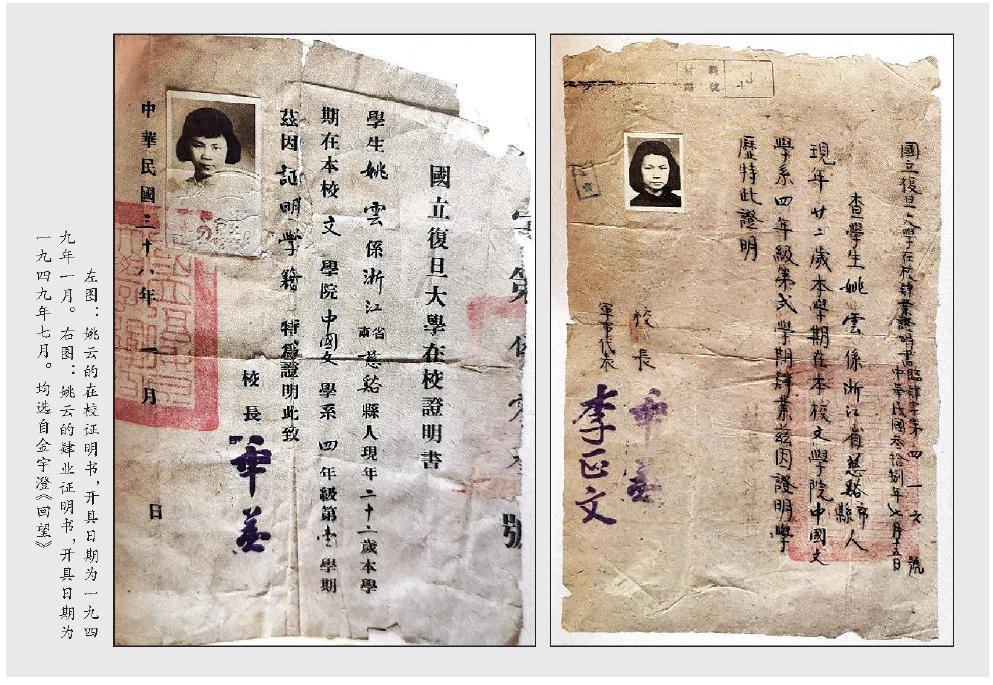 左图：姚云的在校证明书，开具日期为一九四
九年一月。右图：姚云的肄业证明书，开具日期为
一九四九年七月。均选自金宇澄《回望》
國立復旦大學在校證明書
學生姚雲係浙江省慈谿縣人現年二十二歲本學
期在本校文學院中國文學系四年級第壹學期
茲因証明学籍特爲證明此致
校長
章益
中華民國三十八年一月 日
號
國立復旦大學在校肄業證明書臨肄字第四一六號
中華民國叁拾捌年七月十五日
查學生姚雲係浙江省慈谿縣市人
現年廿二歲本學期在本校文學院中國文
學系四年級第弍學期肄業茲因證明學
歷特此證明
校長 章益
軍事代表 李正文